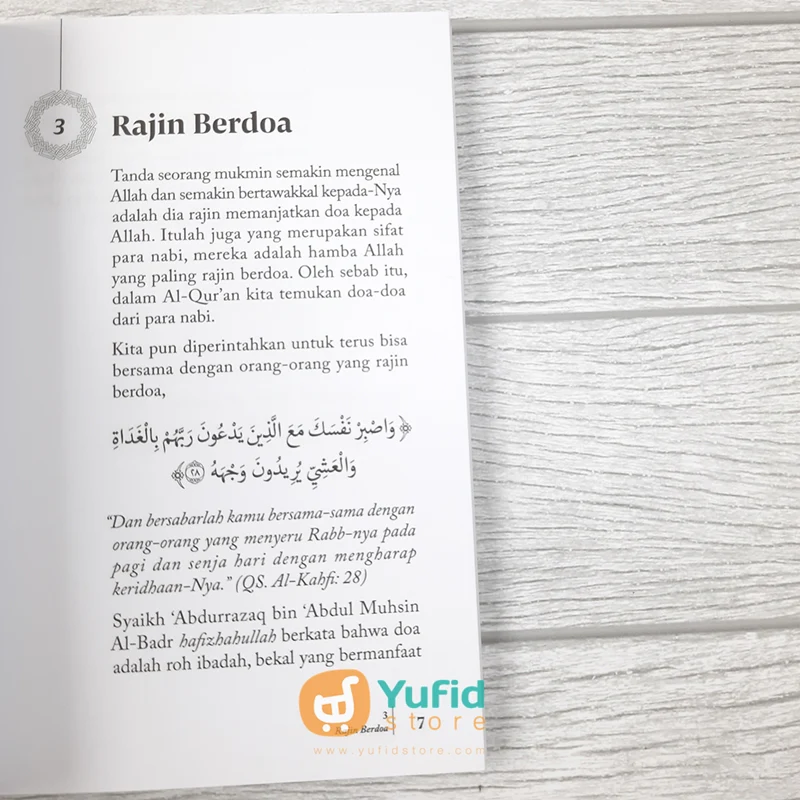 3
Rajin Berdoa
Tanda seorang mukmin semakin mengenal
Allah dan semakin bertawakkal kepada-Nya
adalah dia rajin memanjatkan doa kepada
Allah. Itulah juga yang merupakan sifat
para nabi, mereka adalah hamba Allah
yang paling rajin berdoa. Oleh sebab itu,
dalam Al-Qur’an kita temukan doa-doa
dari para nabi.
Kita pun diperintahkan untuk terus bisa
bersama dengan orang-orang yang rajin
berdoa,
﴿ وَاصْبِرْ نَفْسَكَ مَعَ الَّذِينَ يَدْعُونَ رَبَّهُمْ بِالْغَدَاةِ
وَالْعَشِيِّ يُرِيدُونَ وَجْهَهُ ٢٨ ﴾
“Dan bersabarlah kamu bersama-sama dengan
orang-orang yang menyeru Rabb-nya pada
pagi dan senja hari dengan mengharap
keridhaan-Nya.” (QS. Al-Kahfi: 28)
Syaikh ‘Abdurrazaq bin ‘Abdul Muhsin
Al-Badr hafizhahullah berkata bahwa doa
adalah roh ibadah, bekal yang bermanfaat
3
Rajin Berdoa
7
Yufid
store
www.yufidstore.com